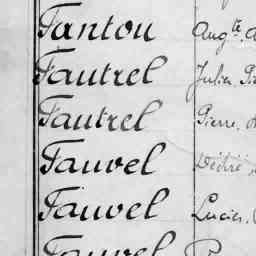 Fantou Augte
Fautrel Jules
Fautrel Pierre
Fauvel Désiré
Fauvel Lucien
Fauvel